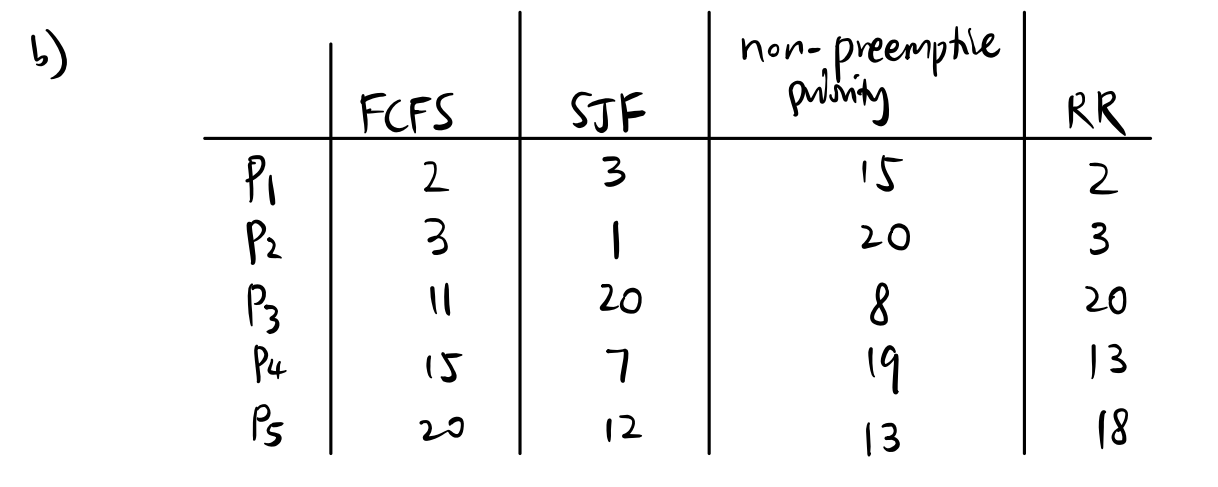 b)
FCFS SJF non-preemptive priority RR
P1 2 3 15 2
P2 3 1 20 3
P3 11 20 8 20
P4 15 7 19 13
P5 20 12 13 18